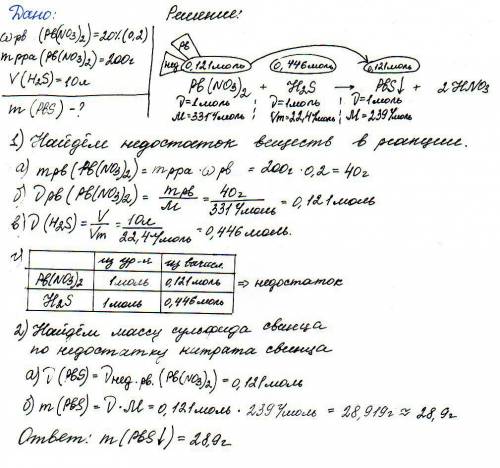 Дано:
ωрв (Pb(NO3)2)=20%(0,2)
mрра(Pb(NO3)2)=200г
V(H2S)=10л
m(PbS)-?
Решение:
рв
нед 0,121моль 0,446моль 0,121моль
Pb(NO3)2 + H2S → PbS↓ + 2HNO3
ν=1моль ν=1моль ν=1моль
M=331г/моль Vm=22,4л/моль M=239г/моль
1) Найдём недостаток веществ в реакции.
а) mрв(Pb(NO3)2)=mрра·ωрв = 200г·0,2=40г
б) νрв(Pb(NO3)2)= mрв/M = 40г/331г/моль = 0,121моль
в) ν(H2S)= V/Vm = 10л/22,4л/моль = 0,446моль.
г)
из ур-я из вычисл.
Pb(NO3)2 1моль 0,121моль ⇒ недостаток
H2S 1моль 0,446моль
2) Найдём массу сульфида свинца
по недостатку нитрата свинца
а) ν(PbS)=νнед.рв.(Pb(NO3)2)=0,121моль
б) m(PbS)=ν·M=0,121моль·239г/моль = 28,919г ≈ 28,9г
Ответ: m(PbS↓)=28,9г